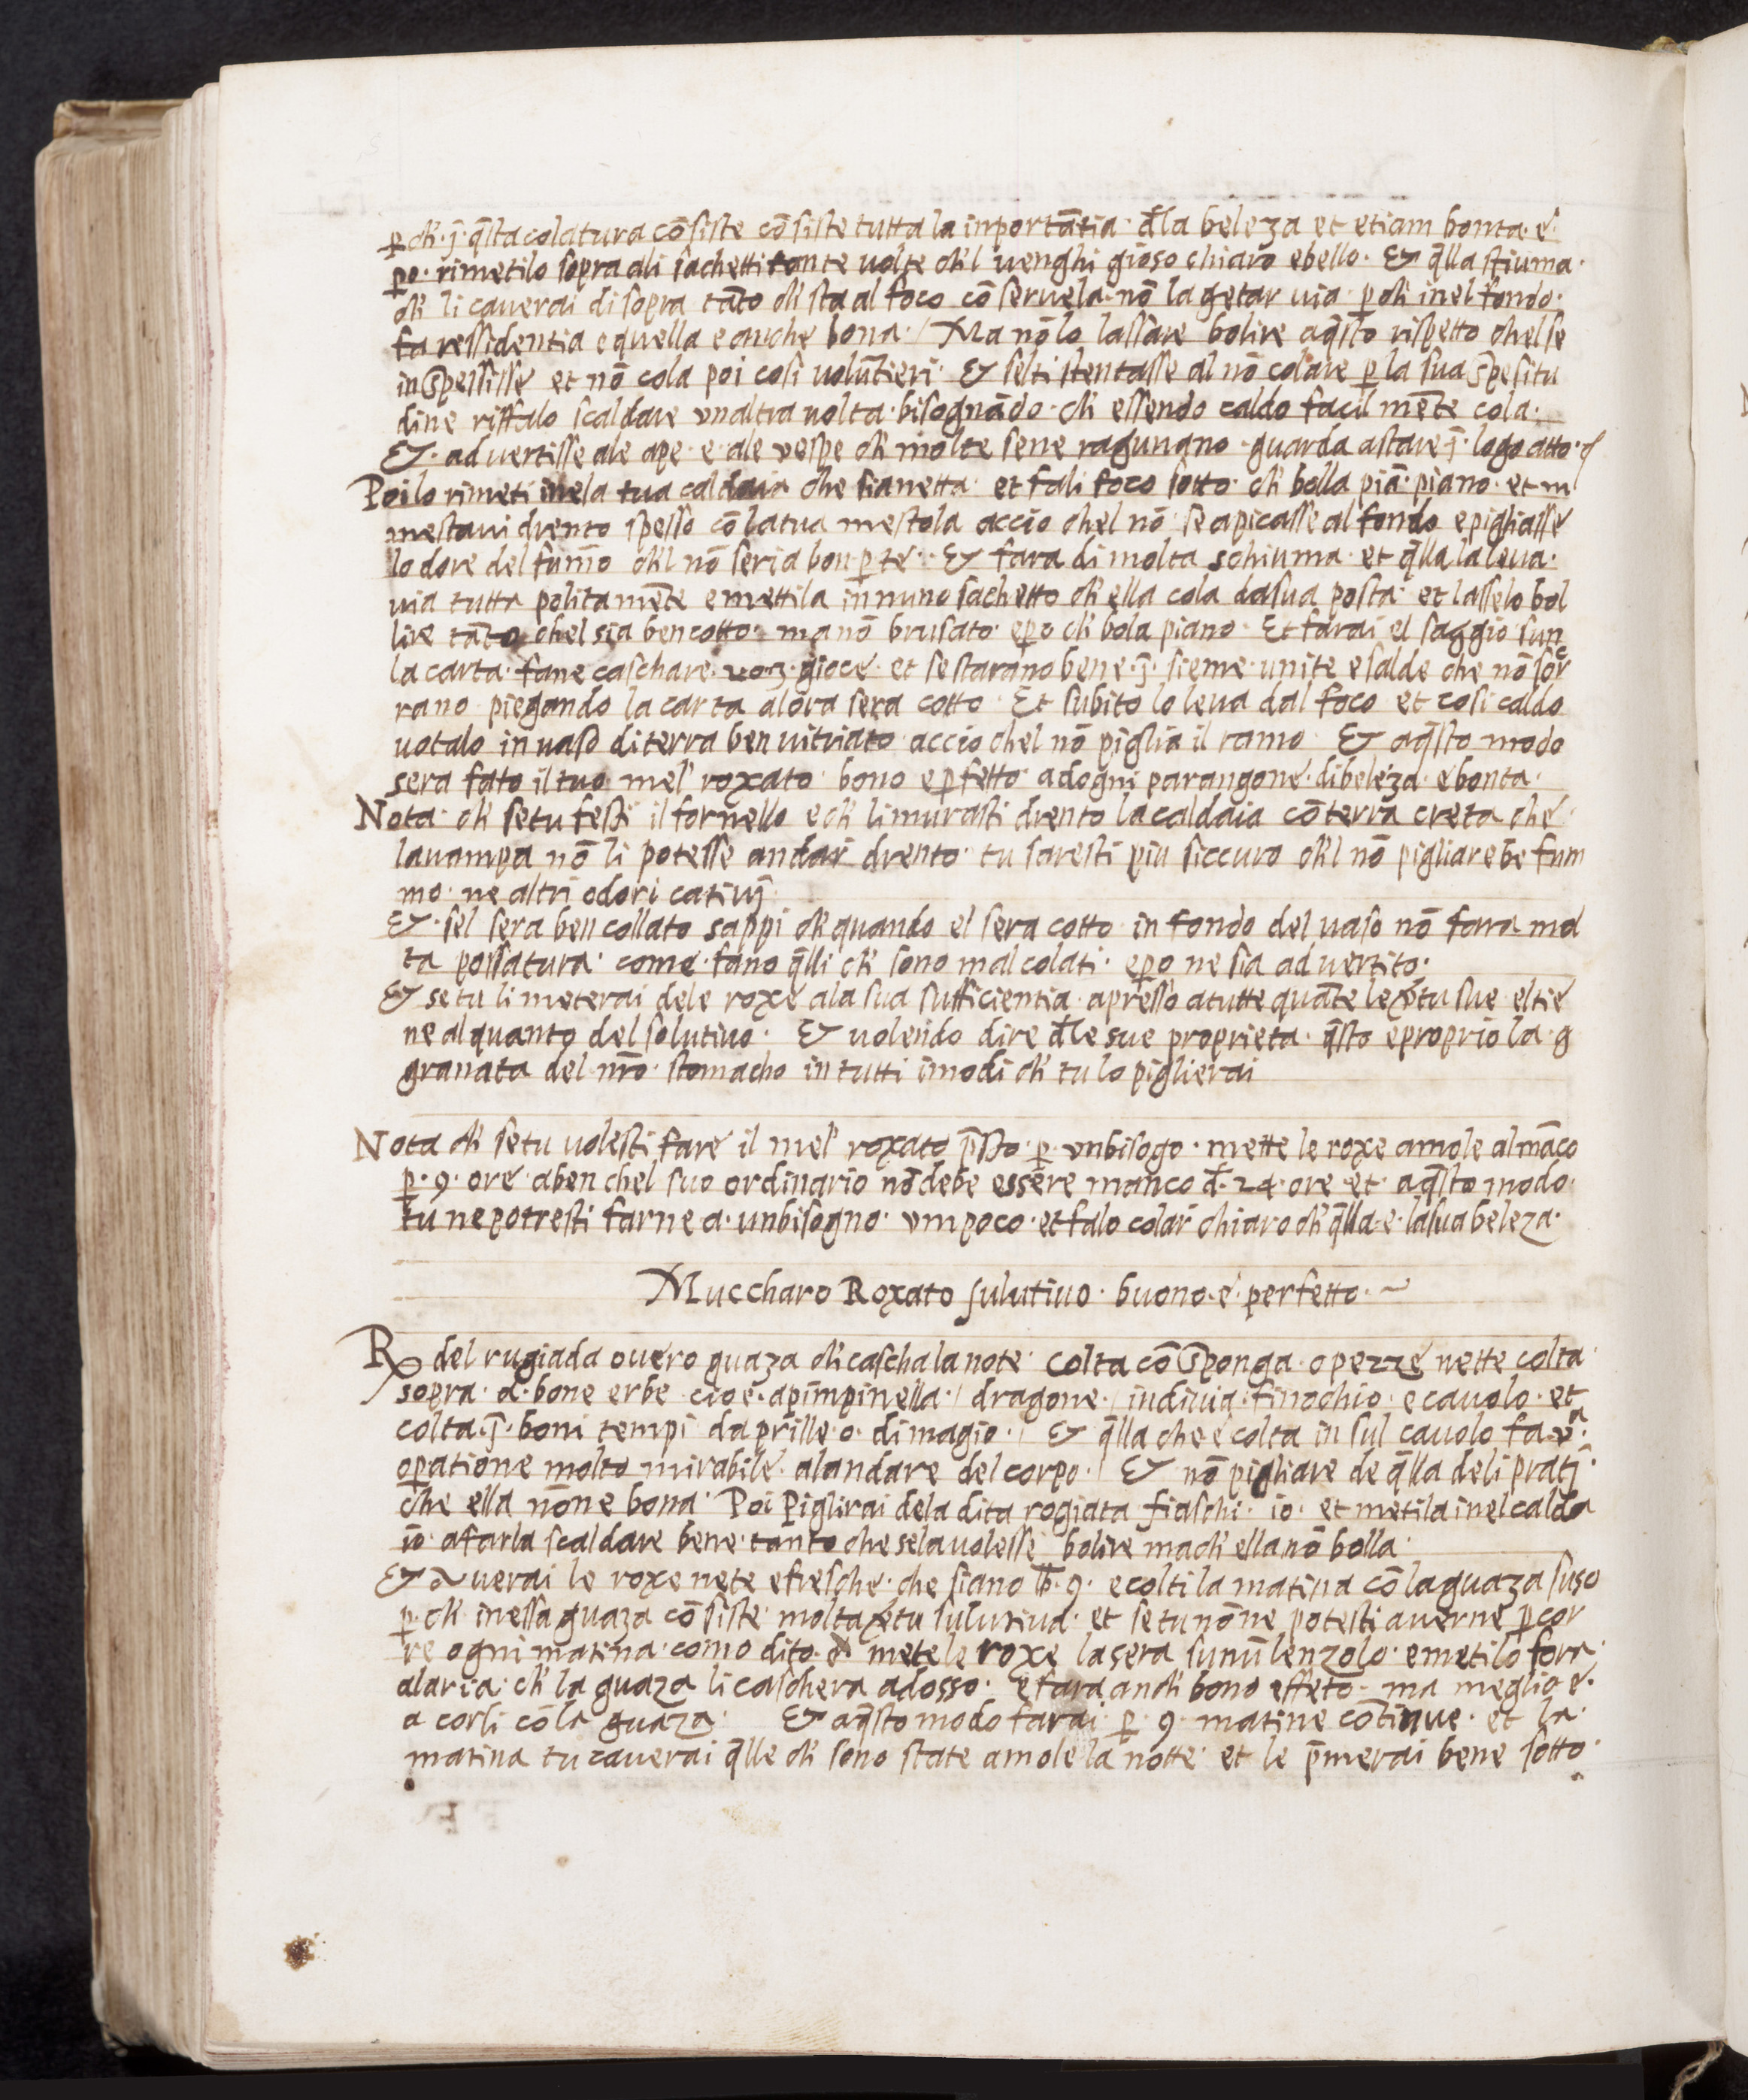 ꝑ ch' ·j̄· q̄sta colatura cōsiste cōsiste tutta la inportātia · d̄la beleza et etiam bonta · e ·
ꝑo · rimetilo sopra ali sachetti tante uolte ch'l uenghi gioso chiaro e bello · Et q̄lla stiuma ·
ch' li cauerai di sopra tāto ch' sta al foco cō seruela · nō la getar uia · ꝑ ch' inel fondo ·
fa ressidentia e quella e anche bona · / Ma nō lo lassare bolire aq̄sto rispetto chel se
inspessisse et nō cola poi cosi uolūtieri · Et selti stentasse al nō colare ꝑ la sua spesitu
dine riffalo scaldare vnaltra uolta · bisognādo · ch' essendo caldo facil mēte cola ·
Et · aduertisse ale ape · e · ale vespe ch' molte sene ragungno · guarda astare · j̄ · logo atto ·
Poi lo rimeti inela tua caldaia che sia netta · et fali foco sotto · ch' bolla piā · piano · et m
mestaui drento spesso cō la tua mestola accio chel nō se apicasse al fondo e pigliasse
lo dore del fum̄o ch'l nō seria bon ꝑ te · Et fara di molta schiuma · et q̄lla la leua ·
uia tutta politamēte e mettila innuno sachetto ch' ella cola da sua posta · et lasselo bol
lire tāto chel sia ben cotto · ma nō brusato · eꝑo ch' bola piano · Et farai el saggio sun
la carta · fane caschare · 2 o 3 · gioce · et se starano bene · j̄ · sieme · unite e salde che nō scor
rano · piegando la carta alora sera cotto · Et subito lo leua dal foco et cosi caldo
uotalo in uaso di terra ben uitriato accio chel nō piglia il ramo · Et aq̄sto modo
sera fato il tuo mel' roxato · bono e ꝑfetto · adogni parangone · di beleza · e bonta ·
Nota · ch' se tu festi il fornello e ch' li murasti drento la caldaia cō terra creta che ·
la uampa nō li potesse andar drento · tu saresti piu siccuro ch'l nō pigliarebe fum
mo · ne altri odori catiuj
Et · sel sera ben collato sappi ch' quando el sera cotto · in fondo del uaso nō fara mol
ta possatura · come · fano q̄lli ch' sono mal colati · eꝑo ne sia aduertito ·
Et se tu li meterai dele roxe ala sua sufficientia · apresso atutte quāte le v̄tu sue el tie
ne alquanto del solutiuo · Et uolendo dire d̄le sue proprieta · q̄sto e proprio la · g
granata del nr̄o · stomacho in tutti i modi ch' tu lo piglierai
Nota ch' se tu uolesti fare il mel' roxato p̄sto · ꝑ · vnbisogo · mette le roxe amole al māco
ꝑ · 9 · ore · aben chel suo ordinario nō debe essere manco d̄ · 24 · ore · et · aq̄sto modo ·
tu ne potresti farne a · unbisogno · vm poco · et falo colar chiaro ch' q̄lla · e · la sua beleza ·
Muccharo Roxato sulutiuo · buono · e · perfetto · ~
℞ del rugiada ouero guaza ch' cascha la note · colta cō sponga · o pezze nette colta ·
sopra · d · bone erbe · cioe · apimpinella · / dragone · / indiuia · finochio · e cauolo · et
colta · j̄ · boni tempi daprille · o · di magio · / Et q̄lla che e colta in sul cauolo fa · vᵃ ·
oꝑatione molto mirabile · alandare del corpo · / Et nō pigliare de q̄lla deli pratj ·
che ella nōne bona · Poi Piglirai dela dita rogiata fiaschi · io · et metila inel calda
io · a farla scaldare bene · tanto che sela uolesse bolire ma ch' ella nō bolla ·
Et auerai le roxe nete e fresche · che siano lb · 9 · e colti la matina cō la guaza suso
ꝑ · ch' inessa guaza cōsiste molta v̄tu sulutiua · et se tu nōne potesti auerne ꝑ cor
re ogni matina · como dito · e mete le roxe la sera sunū lenzolo · e metilo fora ·
alaria · ch' la guaza li caschera adosso · e fara anch' bono effeto · ma meglio e ·
a corli cō la guaza · Et aq̄sto modo farai · ꝑ · 9 · matine cōtinue · et la ·
matina tu cauerai q̄lle ch' sono state amole la notte · et le p̄merai bene sotto ·